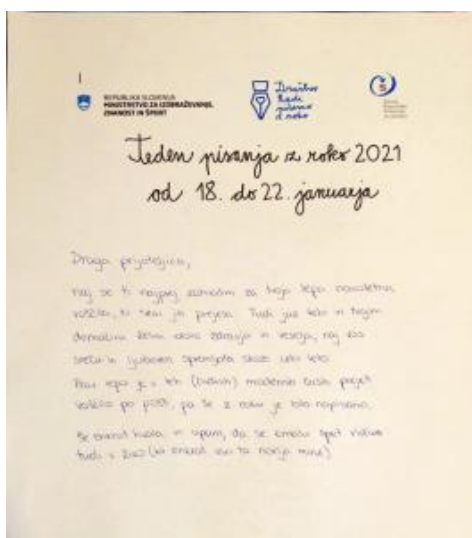 REPUBLIKA SLOVENIJA
MINISTRSTVO ZA IZOBRAŽEVANJE,
ZNANOST IN ŠPORT
Društvo
Radi
pišemo
z roko
Teden pisanja z roko 2021
od 18. do 22. januarja
Draga prijateljica,
naj se ti najprej zahvalim za tvoja lepa novoletna
voščila, ki sem jih prejela. Tudi jaz tebi in tvojim
domačim želim obilo zdravja in veselja, naj vas
sreča in ljubezen spremljata skozi celo leto.
lepo je v teh (čudnih) modernih časih prejeti
voščilo po pošti, pa še z roko je bilo napisano.
Še enkrat hvala in upam, da se kmalu spet vidiva
tudi v živo (ko enkrat vsa ta norija mine)